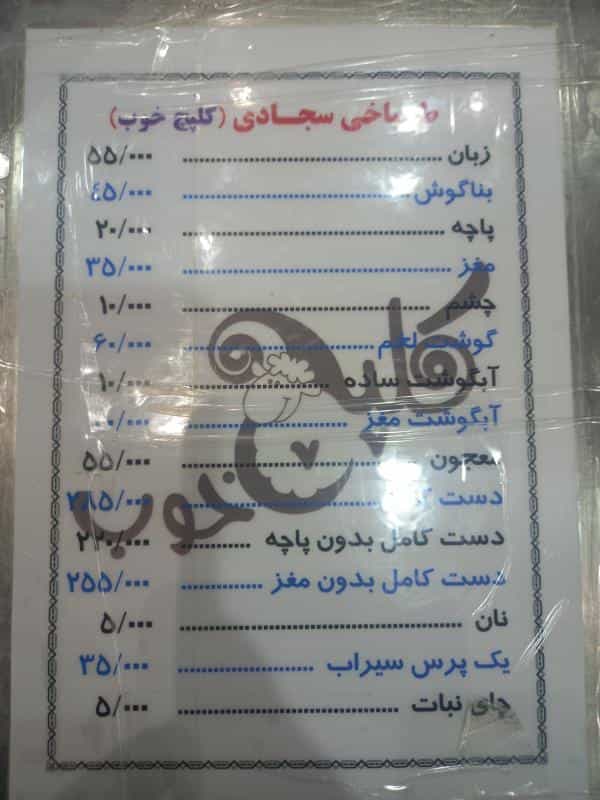 طباخی سجادی (کلپچ خوب)
زبان ........ ۵۵/۰۰۰
بناگوش ........ ۴۵/۰۰۰
پاچه ........ ۲۰/۰۰۰
مغز ........ ۳۵/۰۰۰
چشم ........ ۱۰/۰۰۰
گوشت لخم ........ ۶۰/۰۰۰
آبگوشت ساده ........ ۱۰/۰۰۰
آبگوشت مغز ........
معجون ........ ۵۵/۰۰۰
دست کامل ........ ۲۸۵/۰۰۰
دست کامل بدون پاچه ........ ۲۲۰/۰۰۰
دست کامل بدون مغز ........ ۲۵۵/۰۰۰
نان ........ ۵/۰۰۰
یک پرس سیراب ........ ۳۵/۰۰۰
چای نبات ........ ۵/۰۰۰
کلپچ خوب